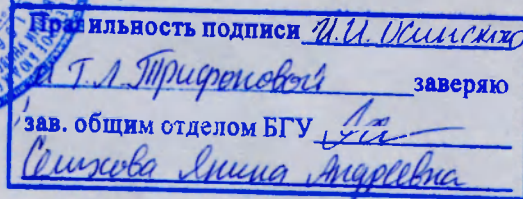 Правильность подписи И.И. Осинского
и Т.Л. Трифоновой заверяю
зав. общим отделом БГУ
Селихова Янина Андреевна